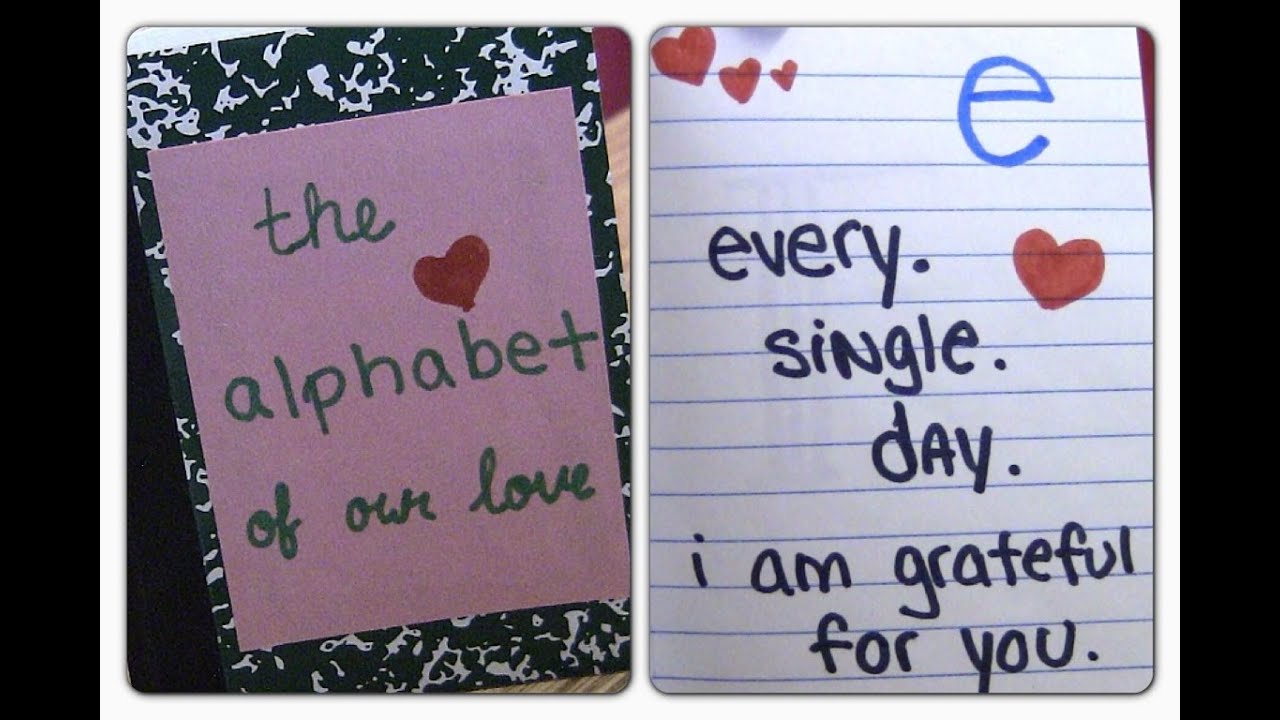 the
alphabet
of our love
e
every.
siNgle.
dAy.
i am grateful
for you.